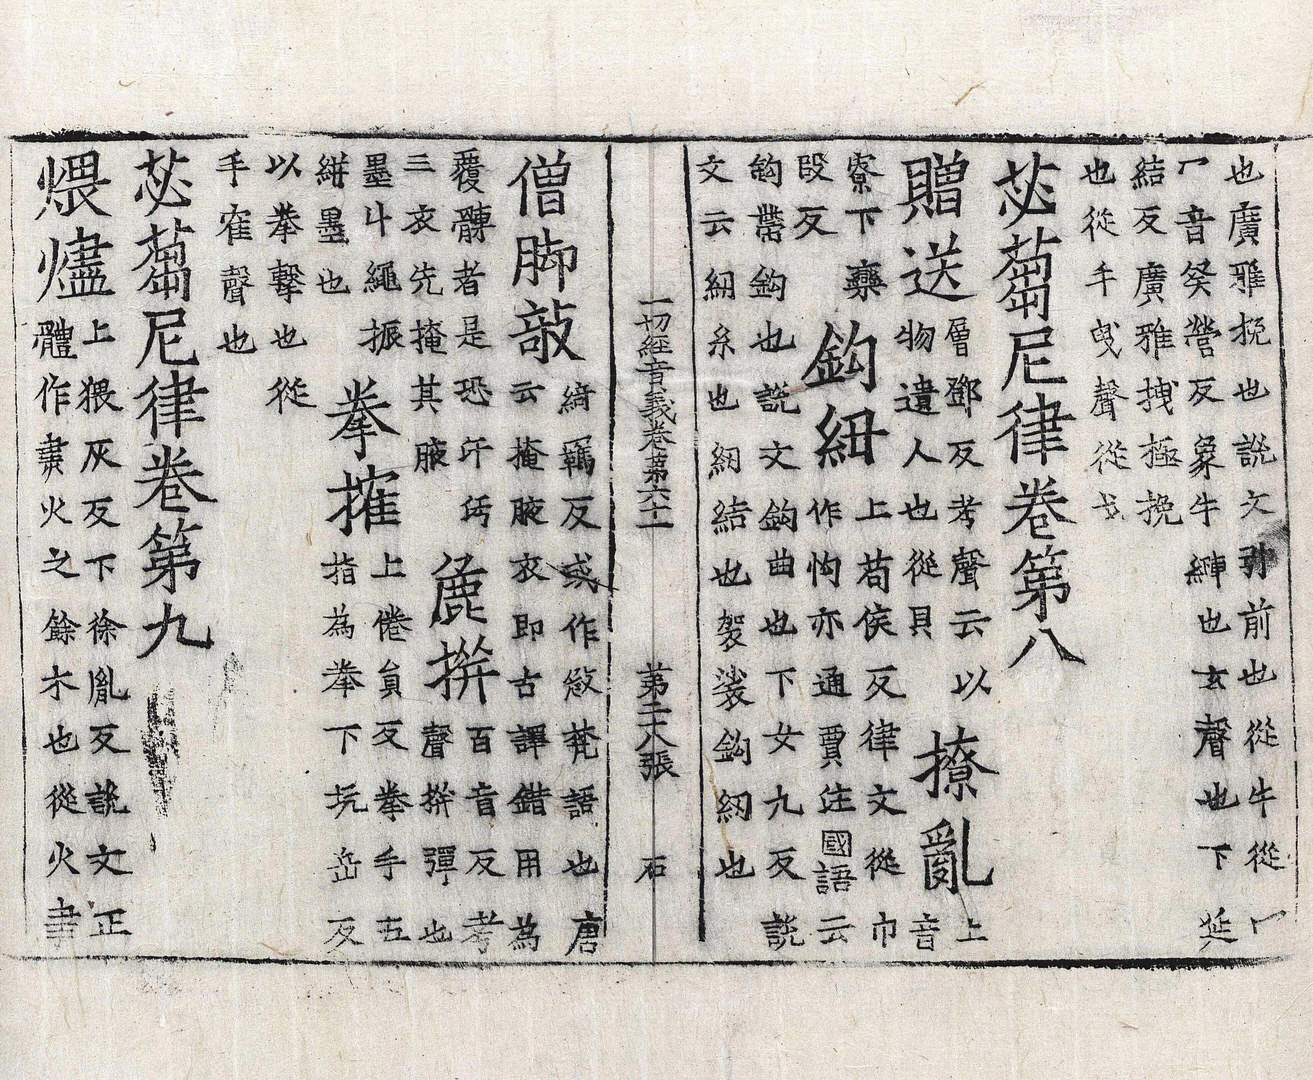 也廣雅挽也説文引前也從牛從冖
冖音癸營反象牛縛也玄聲也下延
結反廣雅拽極挽
也從手曳聲從戈
苾蒭尼律卷第八
贈送 層鄧反考聲云以物遺人也從貝 撩亂 上音
寮下藥
段反 鈎紐 上苟侯反律文從巾作恂亦通賈注國語云
鈎帶鈎也説文鈎曲也下女九反説
文云紐糸也紐結也袈裟鈎紐也
一切經音義卷第六十一 第二十八張 石
僧脚敧 綺羈反或作𢻪梵語也唐云掩腋衣即古譯錯用為
覆髆者是恐汗污
三衣先掩其腋 麁拼 百音反考聲拼彈也
墨斗繩振
絣墨也 拳搉 上倦負反拳手五指為拳下抏岳反
以拳擊也從
手隺聲也
苾蒭尼律卷第九
煨燼 上猥灰反下徐胤反説文正
體作㶳火之餘木也從火聿